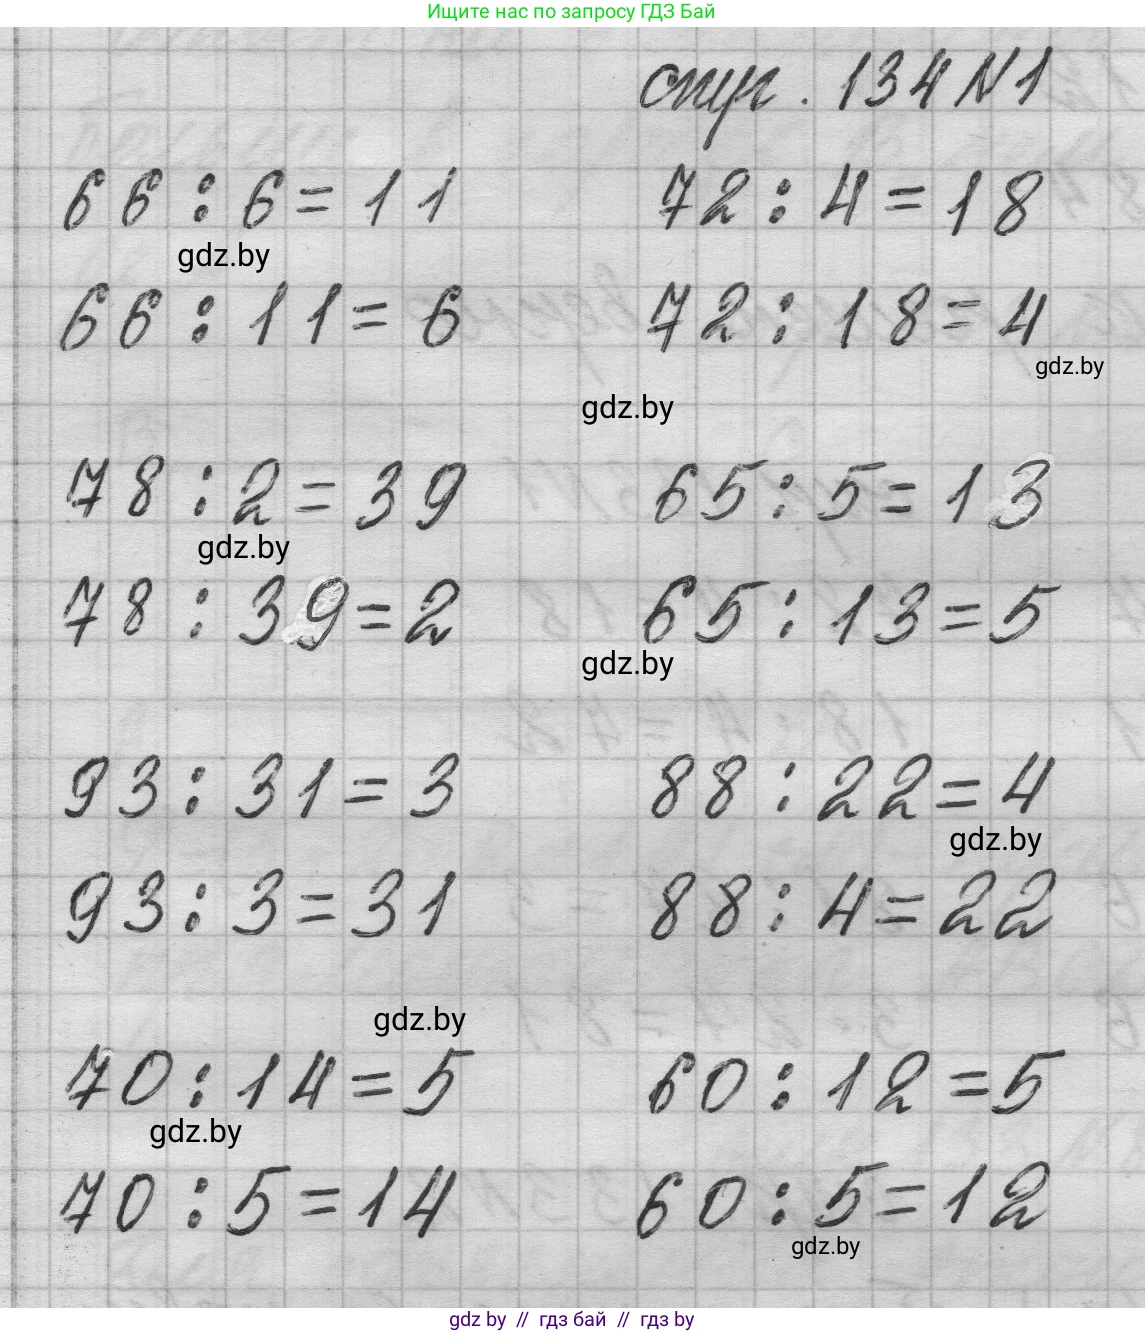 Ищите нас по запросу ГДЗ Бай
стр. 134 N1
66 : 6 = 11 72 : 4 = 18
gdz.by
66 : 11 = 6 72 : 18 = 4
gdz.by
gdz.by
78 : 2 = 39 65 : 5 = 13
gdz.by
78 : 39 = 2 65 : 13 = 5
gdz.by
93 : 31 = 3 88 : 22 = 4
gdz.by
93 : 3 = 31 88 : 4 = 22
gdz.by
70 : 14 = 5 60 : 12 = 5
gdz.by
70 : 5 = 14 60 : 5 = 12
gdz.by
gdz by // гдз бай // гдз by